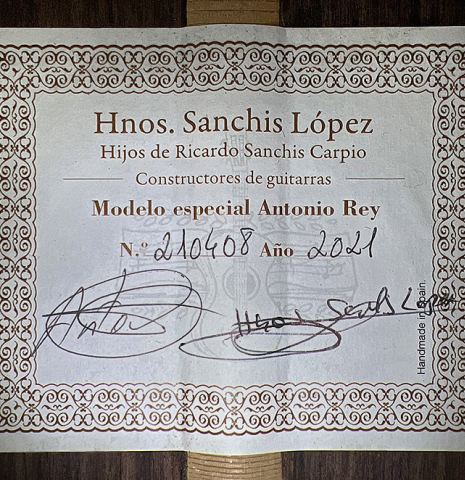 Hnos. Sanchis López
Hijos de Ricardo Sanchis Carpio
Constructores de guitarras
Modelo especial Antonio Rey
N.º 210408 Año 2021
Antonio
Hnos Sanchis López
Handmade in Spain.